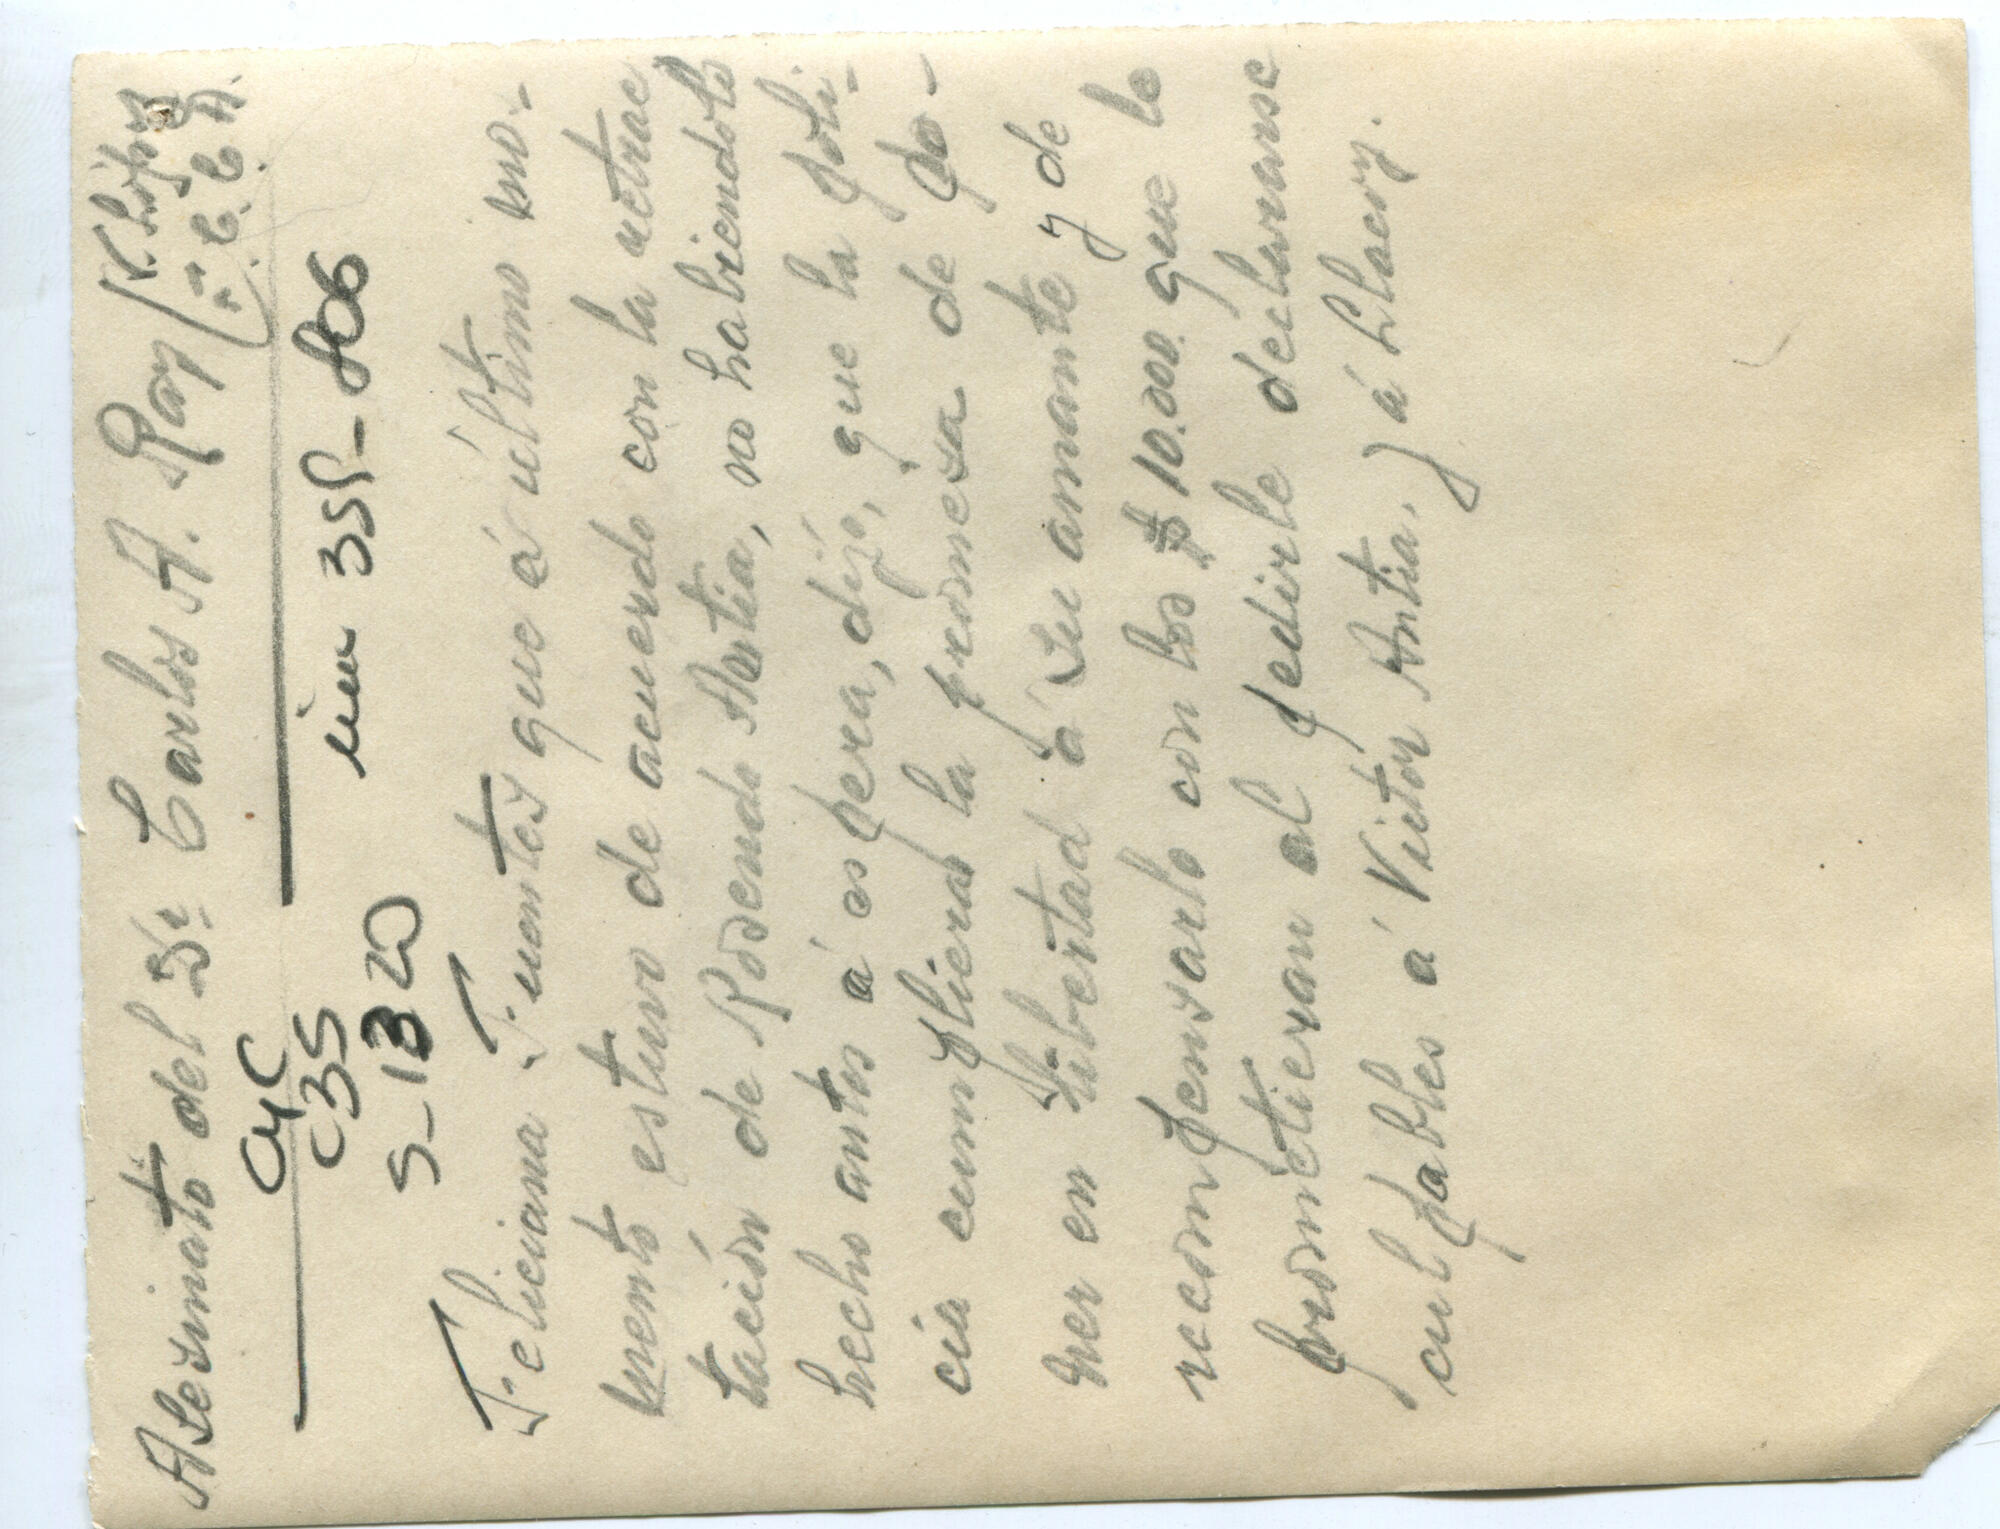 Asesinato del Dr. Carlos A. Ray (V. López
" " C. C. A.
CyC
C35
S-13 20
im 355-406
Feliciana Fuentes que á último mo-
mento estuvo de acuerdo con la retrac
tación de Rosendo Artia, no habiendolo
hecho antes á espera, dijo, que la poli-
cia cumpliera la promesa de po-
ner en libertad á su amante y de
recompensarlo con los $ 10.000 que le
prometieran al pedirle declararse
culpables á Victor Antia, y á Llaery.